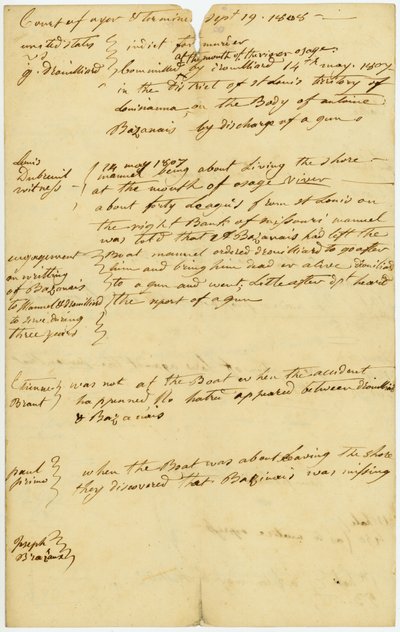 Court of oyer & terminer Sept 19. 1808
united states } indict for murder
at the mouth of the river osage
g. Drouillard } Committed by Drouilliard 14th may. 1807
in the district of st Louis territory of
Louisianna, on the Body of antoine
Bazanais by discharge of a gun
Louis
Dubreuil
witness
14 may 1807
manuel being about living the shore
at the mouth of osage river
about forty Leagues from st Louis on
the right Bank of missouri manuel
was told that Bazanais had left the
Boat manuel ordered drouilliard to go after
him and bring him dead or alive drouilliard
to a gun and went, Little after dpt heard
the report of a gun
engagement
in writting
of Bazanais
to Manuel & drouilliard
to serve during
three years
Etienne
Brant
was not at the Boat when the accident
happenned No hatred appeared between drouilliard
& Bazanais
paul
primo
when the Boat was about Leaving the shore
they discovered that Bazanais was missing
Joseph
Brazeaux